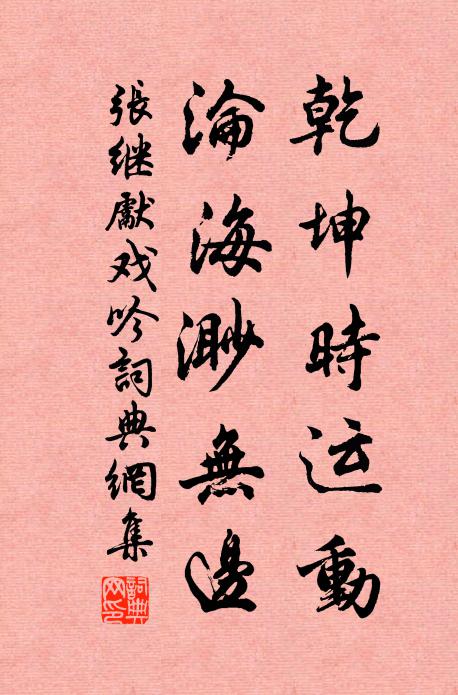 乾坤時运動
淪海渺無邊
張继獻戏吟詞典網集
詞典
网印